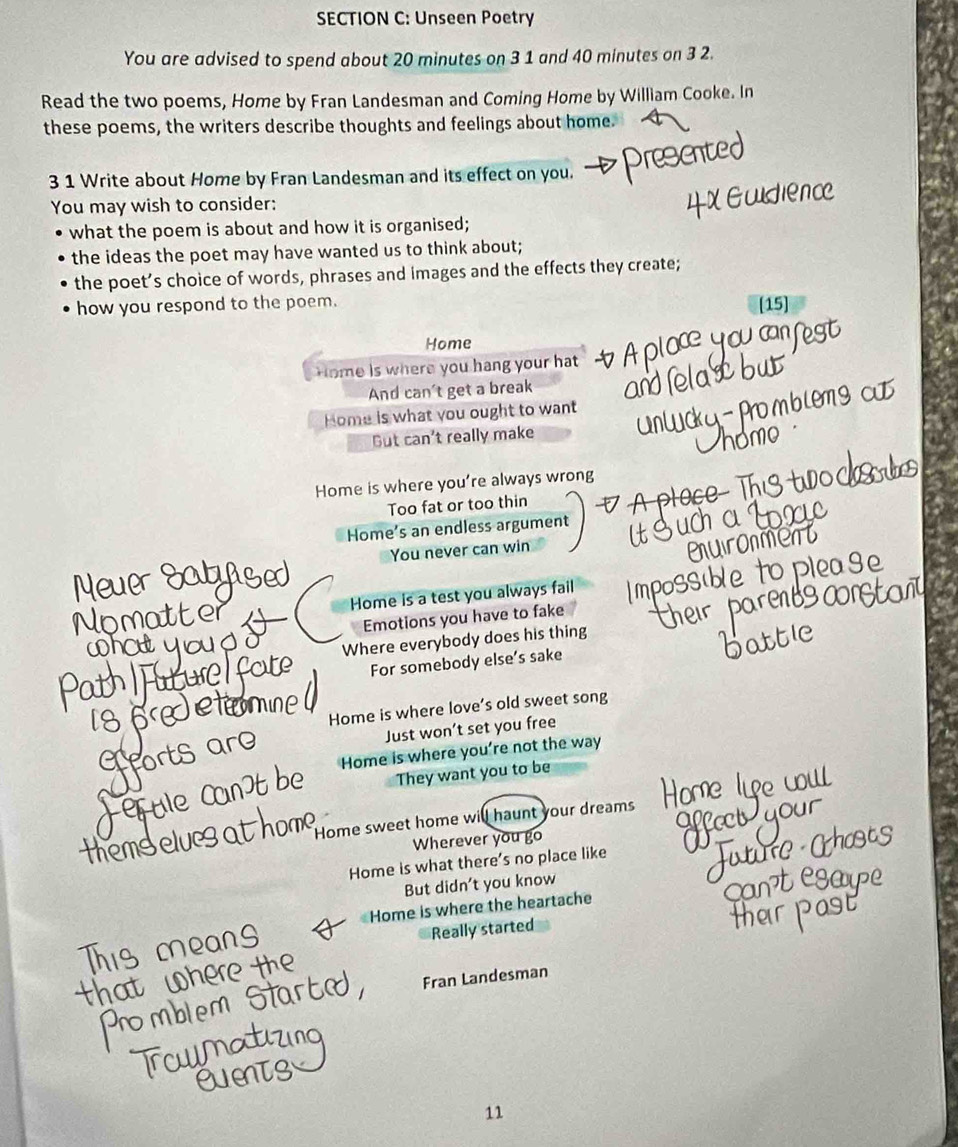 SECTION C: Unseen Poetry
You are advised to spend about 20 minutes on 3 1 and 40 minutes on 3 2.
Read the two poems, Home by Fran Landesman and Coming Home by William Cooke. In
these poems, the writers describe thoughts and feelings about home.
3 1 Write about Home by Fran Landesman and its effect on you.
presented
You may wish to consider:
4x Euidience
• what the poem is about and how it is organised;
• the ideas the poet may have wanted us to think about;
• the poet's choice of words, phrases and images and the effects they create;
• how you respond to the poem.
[15]
Home
Home is where you hang your hat
And can't get a break
Home is what you ought to want
But can't really make
A place you can rest
and relax but
unlucky - promblems at
home.
Home is where you're always wrong
Too fat or too thin
Home's an endless argument
You never can win
A place This two describes
it such a toxic
enuironment
Home is a test you always fail
Emotions you have to fake
Where everybody does his thing
For somebody else's sake
Impossible to please
their parents constant
battle
Never satyfised
Nomatter
what you do
Path / Future / fate
is predetermined
efforts are
fertile can't be
themselves at home
Home is where love's old sweet song
Just won't set you free
Home is where you're not the way
They want you to be
Home sweet home will haunt your dreams
Wherever you go
Home is what there's no place like
But didn't you know
Home is where the heartache
Really started
Home life will
affect your
future. Ghosts
can't escape
their past
This means
that where the
Promblem started,
Traumatizing
events
Fran Landesman
11